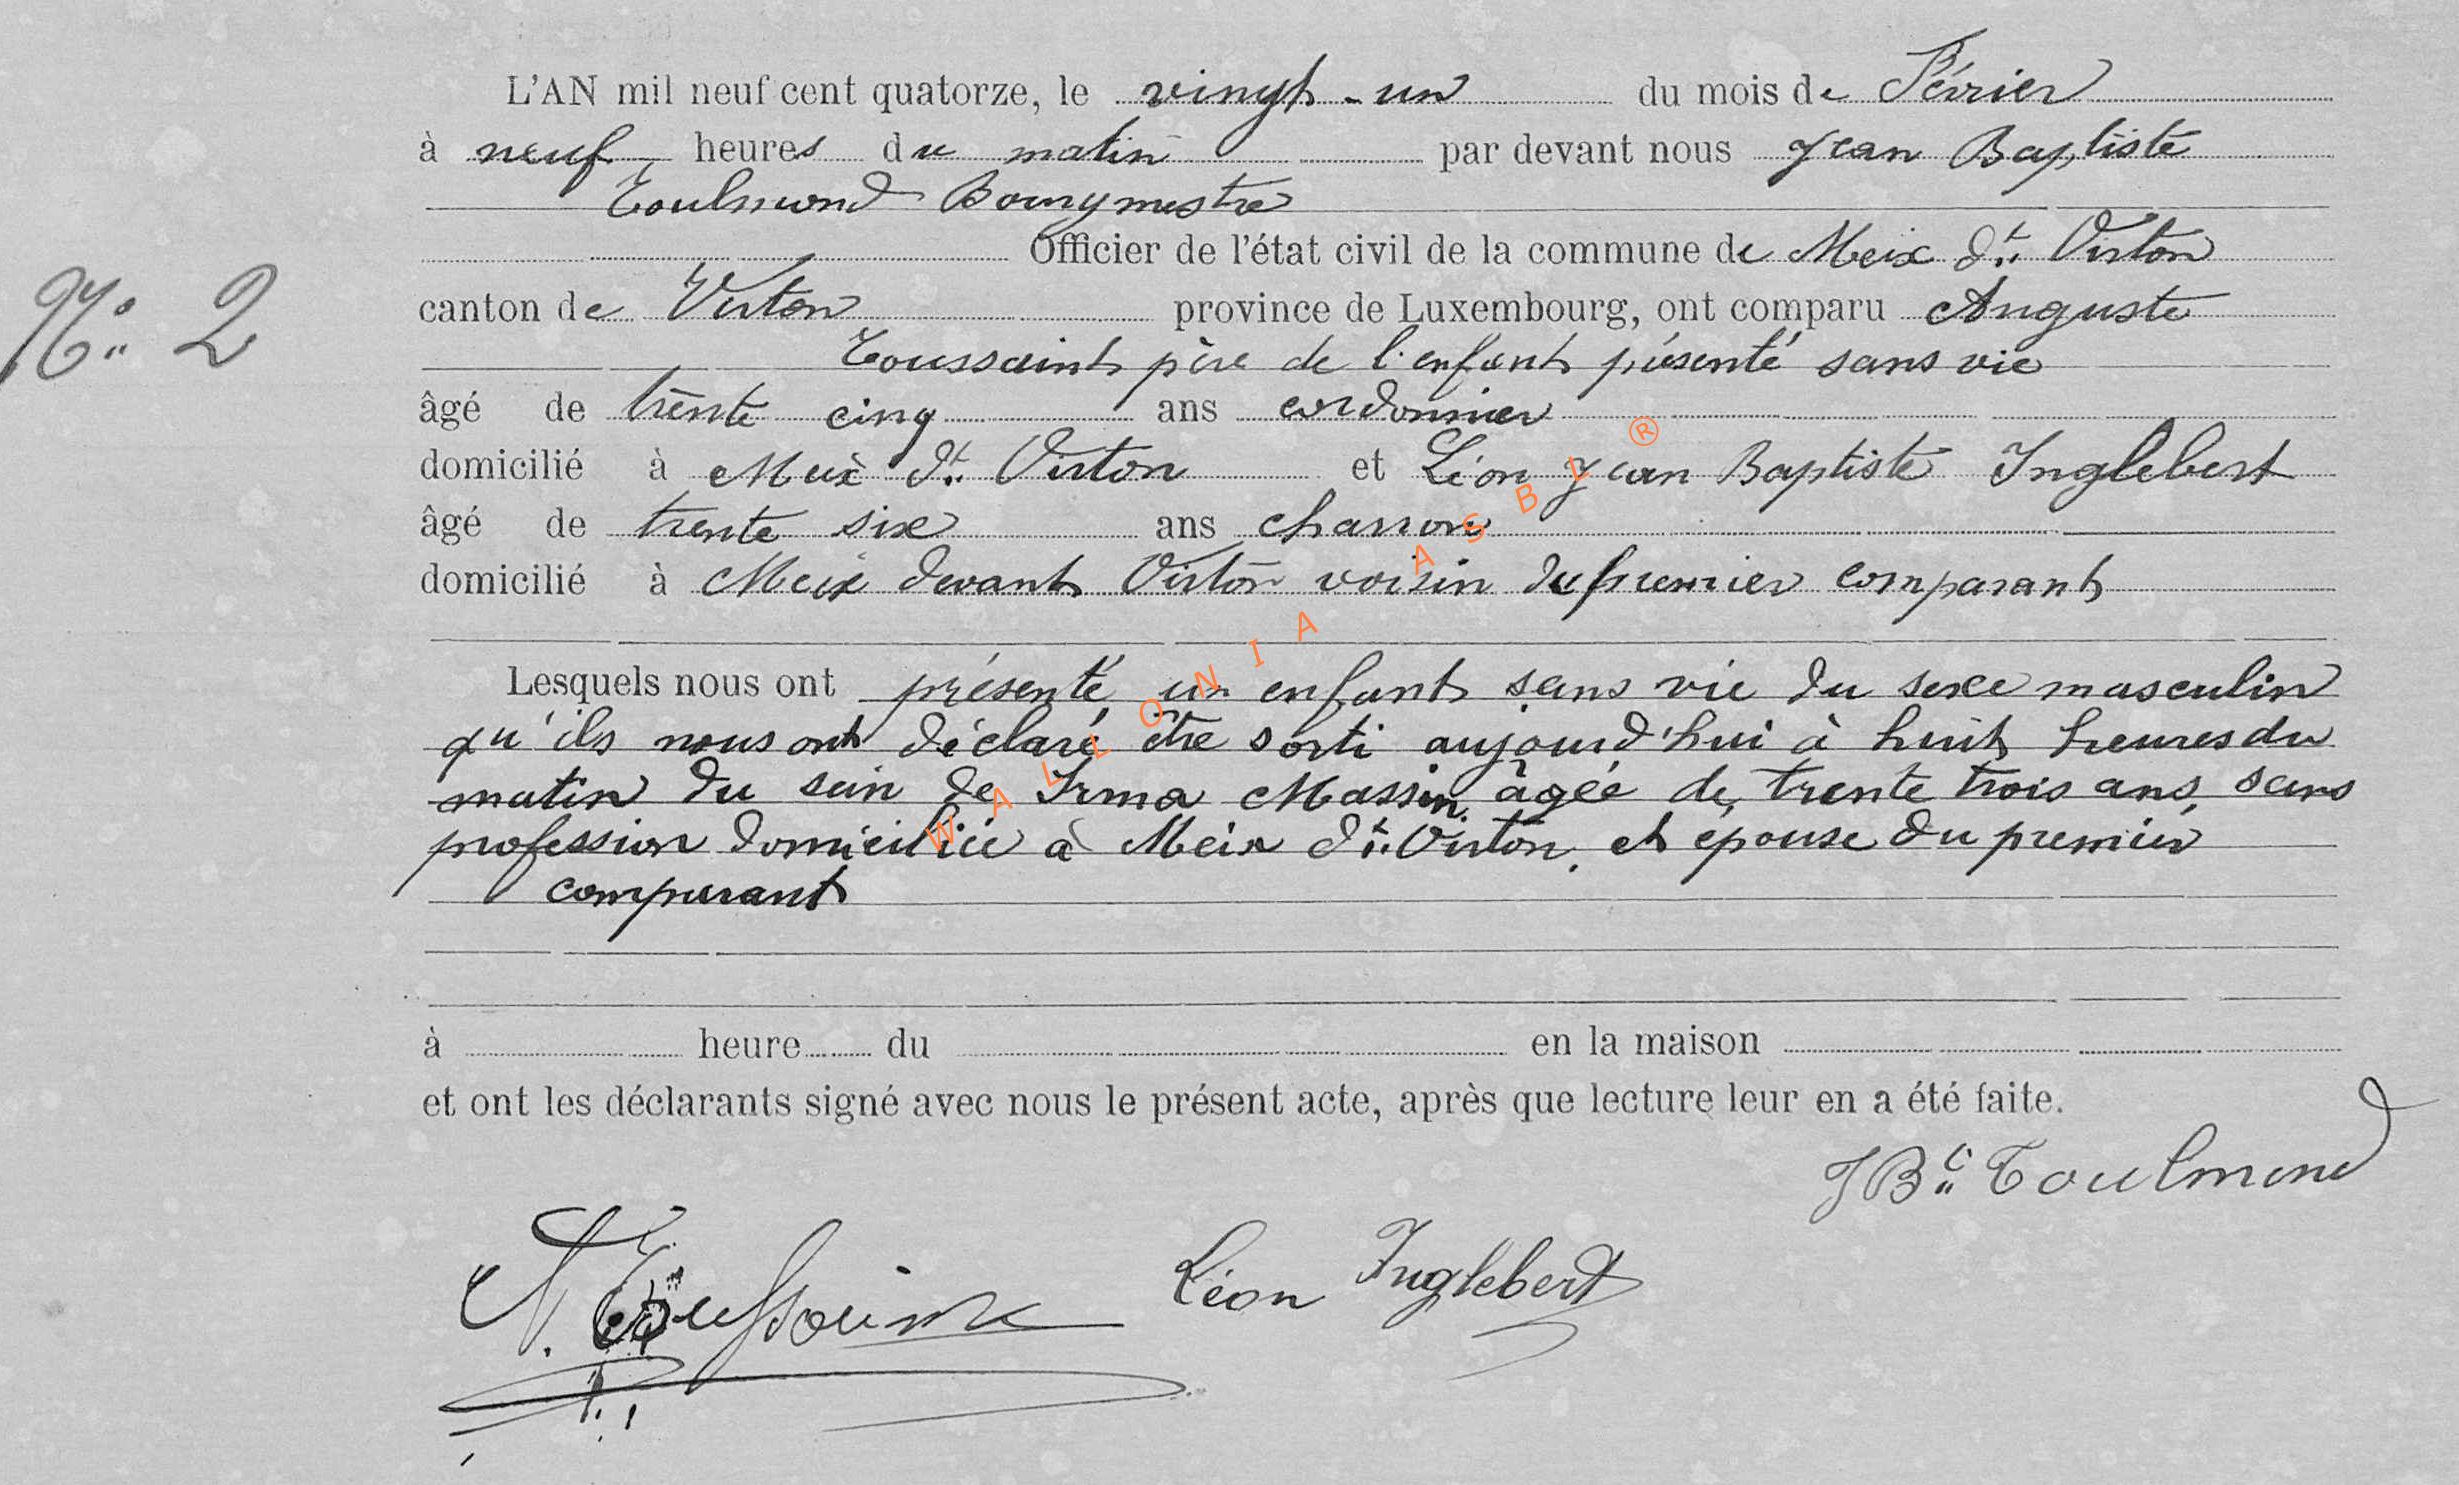 L'AN mil neuf cent quatorze, le vingt-un du mois de Février
à neuf heures du matin par devant nous Jean Baptiste
Toulmond Bourgmestre
Officier de l'état civil de la commune de Meix dt Virton
N° 2
canton de Virton province de Luxembourg, ont comparu Auguste
Toussaint père de l'enfant présenté sans vie
âgé de trente cinq ans cordonnier
domicilié à Meix dt Virton et Léon Jean Baptiste Inglebert
âgé de trente six ans charron
domicilié à Meix devant Virton voisin du premier comparant
Lesquels nous ont présenté un enfant sans vie du sexe masculin
qu'ils nous ont déclaré être sorti aujourd'hui à huit heures du
matin du sein de Irma Massin, âgée de trente trois ans, sans
profession domiciliée à Meix dt Virton, et épouse du premier
comparant
à heure du en la maison
et ont les déclarants signé avec nous le présent acte, après que lecture leur en a été faite.
JBte Toulmond
A. Toussaint Léon Inglebert
WALLONIA ASBL ®